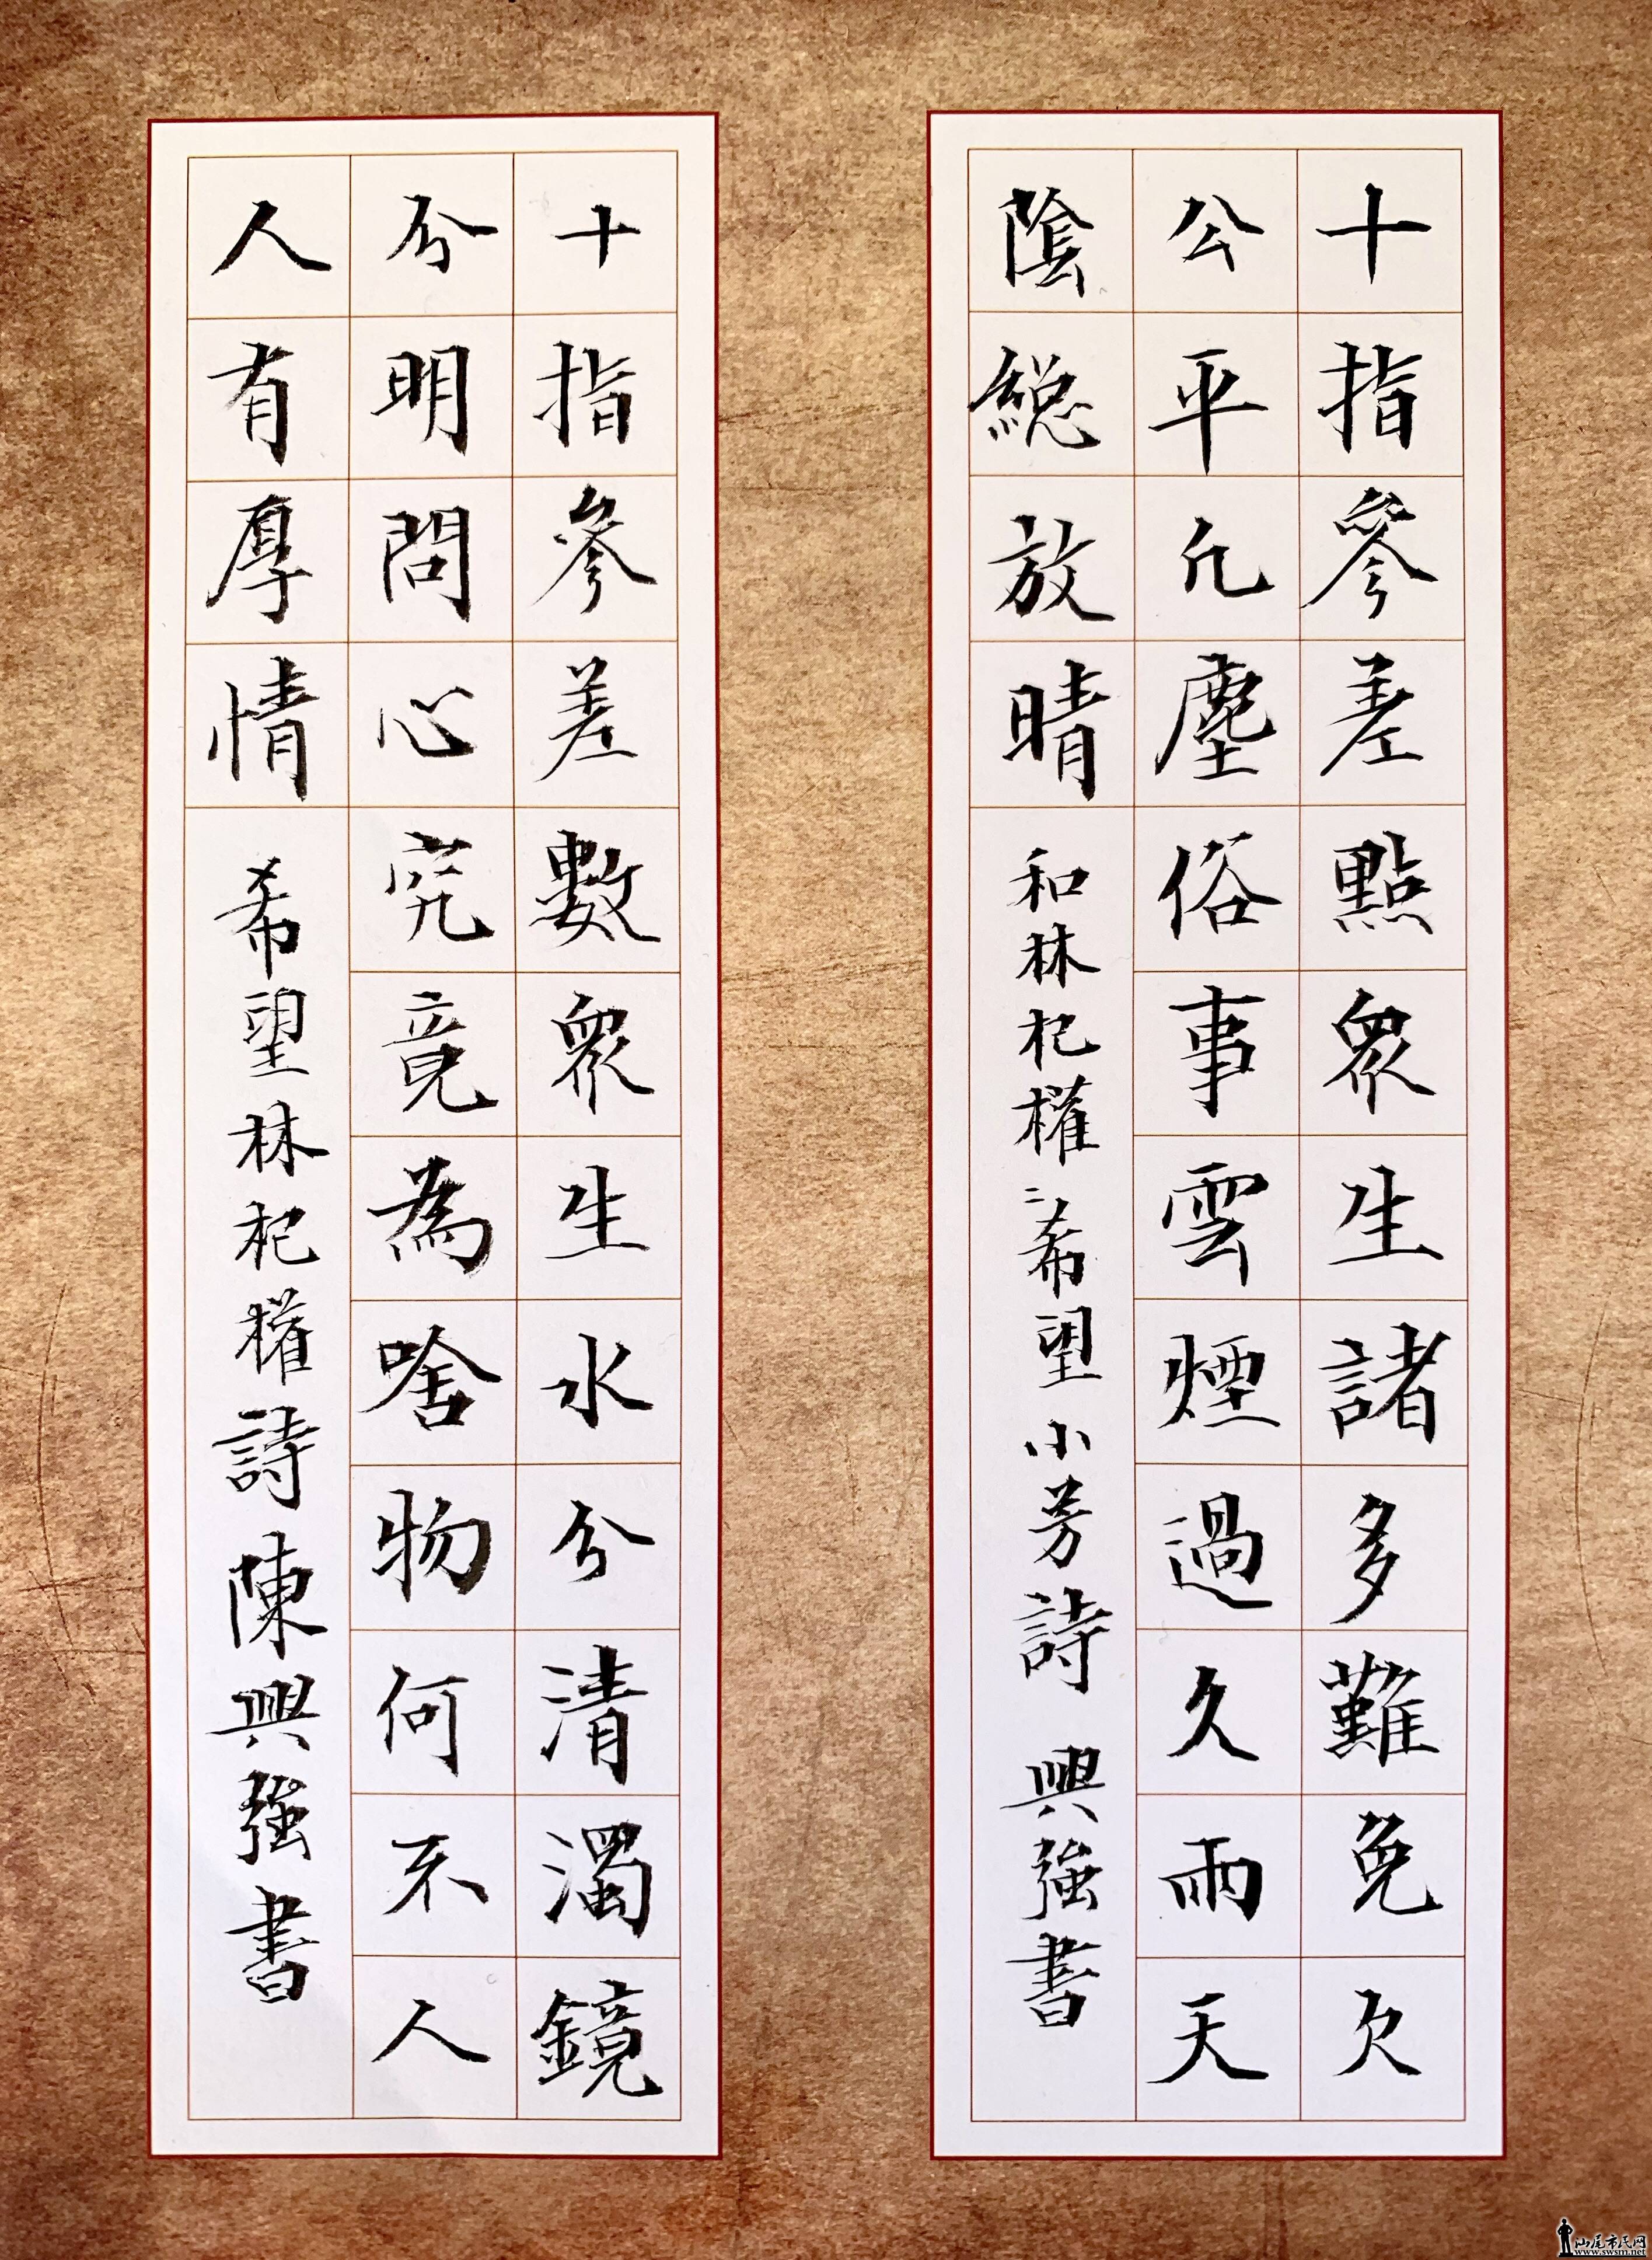 十指參差點眾生諸多難免欠
公平凡塵俗事雲煙過久雨天
陰總放晴
和林杞權希望小芳詩 興強書
十指參差數眾生水分清濁鏡
分明問心究竟為啥物何不人
人有厚情
希望林杞權詩陳興強書
汕尾市民网
www.swsm.net